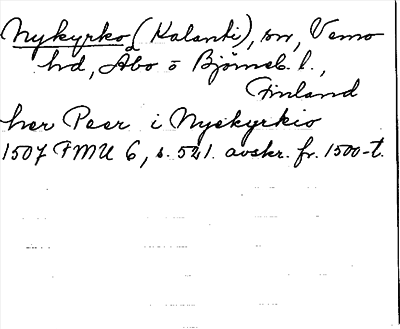 Nykyrko (Kalanti), sn, Vemo
hd, Åbo o Björneb. l.,
Finland
her Peer i Nyekyrkio
1507 FMU 6, s. 521. avskr. fr. 1500-t.